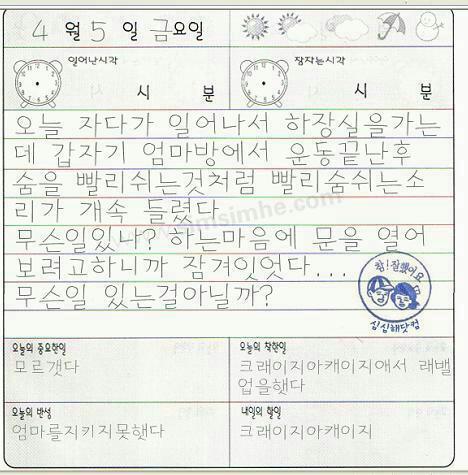 4 월 5 일 금요일
일어난시각
시 분
잠자는시각
시 분
오늘 자다가 일어나서 하장실을가는
데 갑자기 엄마방에서 운동끝난후
숨을 빨리쉬는것처럼 빨리숨쉬는소
리가 개속 들렸다
무슨일있나? 하는마음에 문을 열어
보려고하니까 잠겨잇엇다...
무슨일 있는걸아닐까?
simsimhe.com
참!잘했어요
심심해닷컴
오늘의 중요한일
모르갯다
오늘의 착한일
크래이지아캐이지애서 래밸
업을햇다
오늘의 반성
엄마를지키지못햇다
내일의 할일
크래이지아캐이지